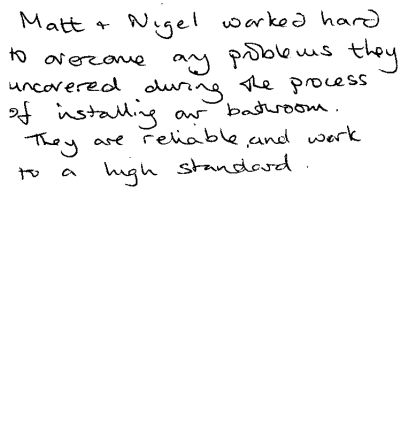 Matt + Nigel worked hard
to overcome any problems they
uncovered during the process
of installing our bathroom.
They are reliable, and work
to a high standard.